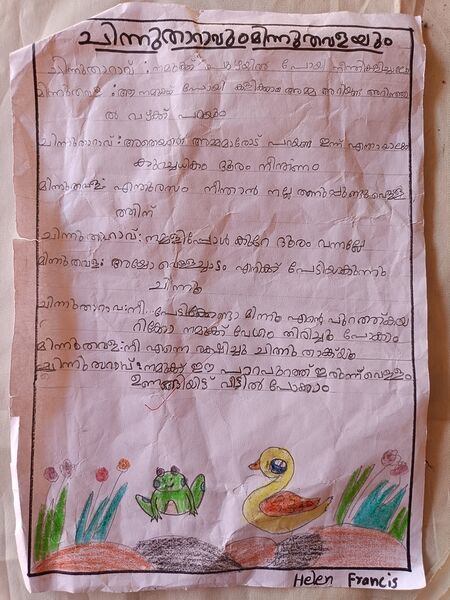 ചിന്നുതാറാവുംമിന്നുതവളയും
ചിന്നുതാറാവ് :നമുക്ക് പുഴയിൽ പോയി നീന്തികളിച്ചാലോ
മിന്നുതവള :ആ നമുക്ക് പോയി കളിക്കാം അമ്മ അറിയണ്ട അറിഞ്ഞാ
ൽ വഴക്ക് പറയും
ചിന്നുതാറാവ് : അമ്മമാരോട് പറയണ്ട ഇന്ന്
കുറച്ചധികം ദൂരം നീന്തണം
മിന്നുതവള: എന്തുരസം നീന്താൻ നല്ല തണുപ്പുണ്ടുവെള്ള
ത്തിന്
ചിന്നുതാറാവ്: നമ്മളിപ്പോൾ കുറേ ദൂരം വന്നല്ലോ
മിന്നുതവള: അയ്യോ വെള്ളച്ചാട്ടം എനിക്ക് പേടിയാകുന്നു
ചിന്നു
ചിന്നുതാറാവ്:നീ...പേടിക്കേണ്ടാ മിന്നു എന്റെ പുറത്ത്കയ
റിക്കോ നമുക്ക് വേഗം തിരിച്ചു പോകാം
മിന്നുതവള:നീ എന്നെ രക്ഷിച്ചു ചിന്നു താങ്ക്‌യു
ചിന്നുതാറാവ്: നമുക്ക് ഈ പാറപുറത്ത് ഇരുന്ന് വെള്ളം
ഉണങ്ങിയിട്ട് വീട്ടിൽ പോകാം
Helen Francis